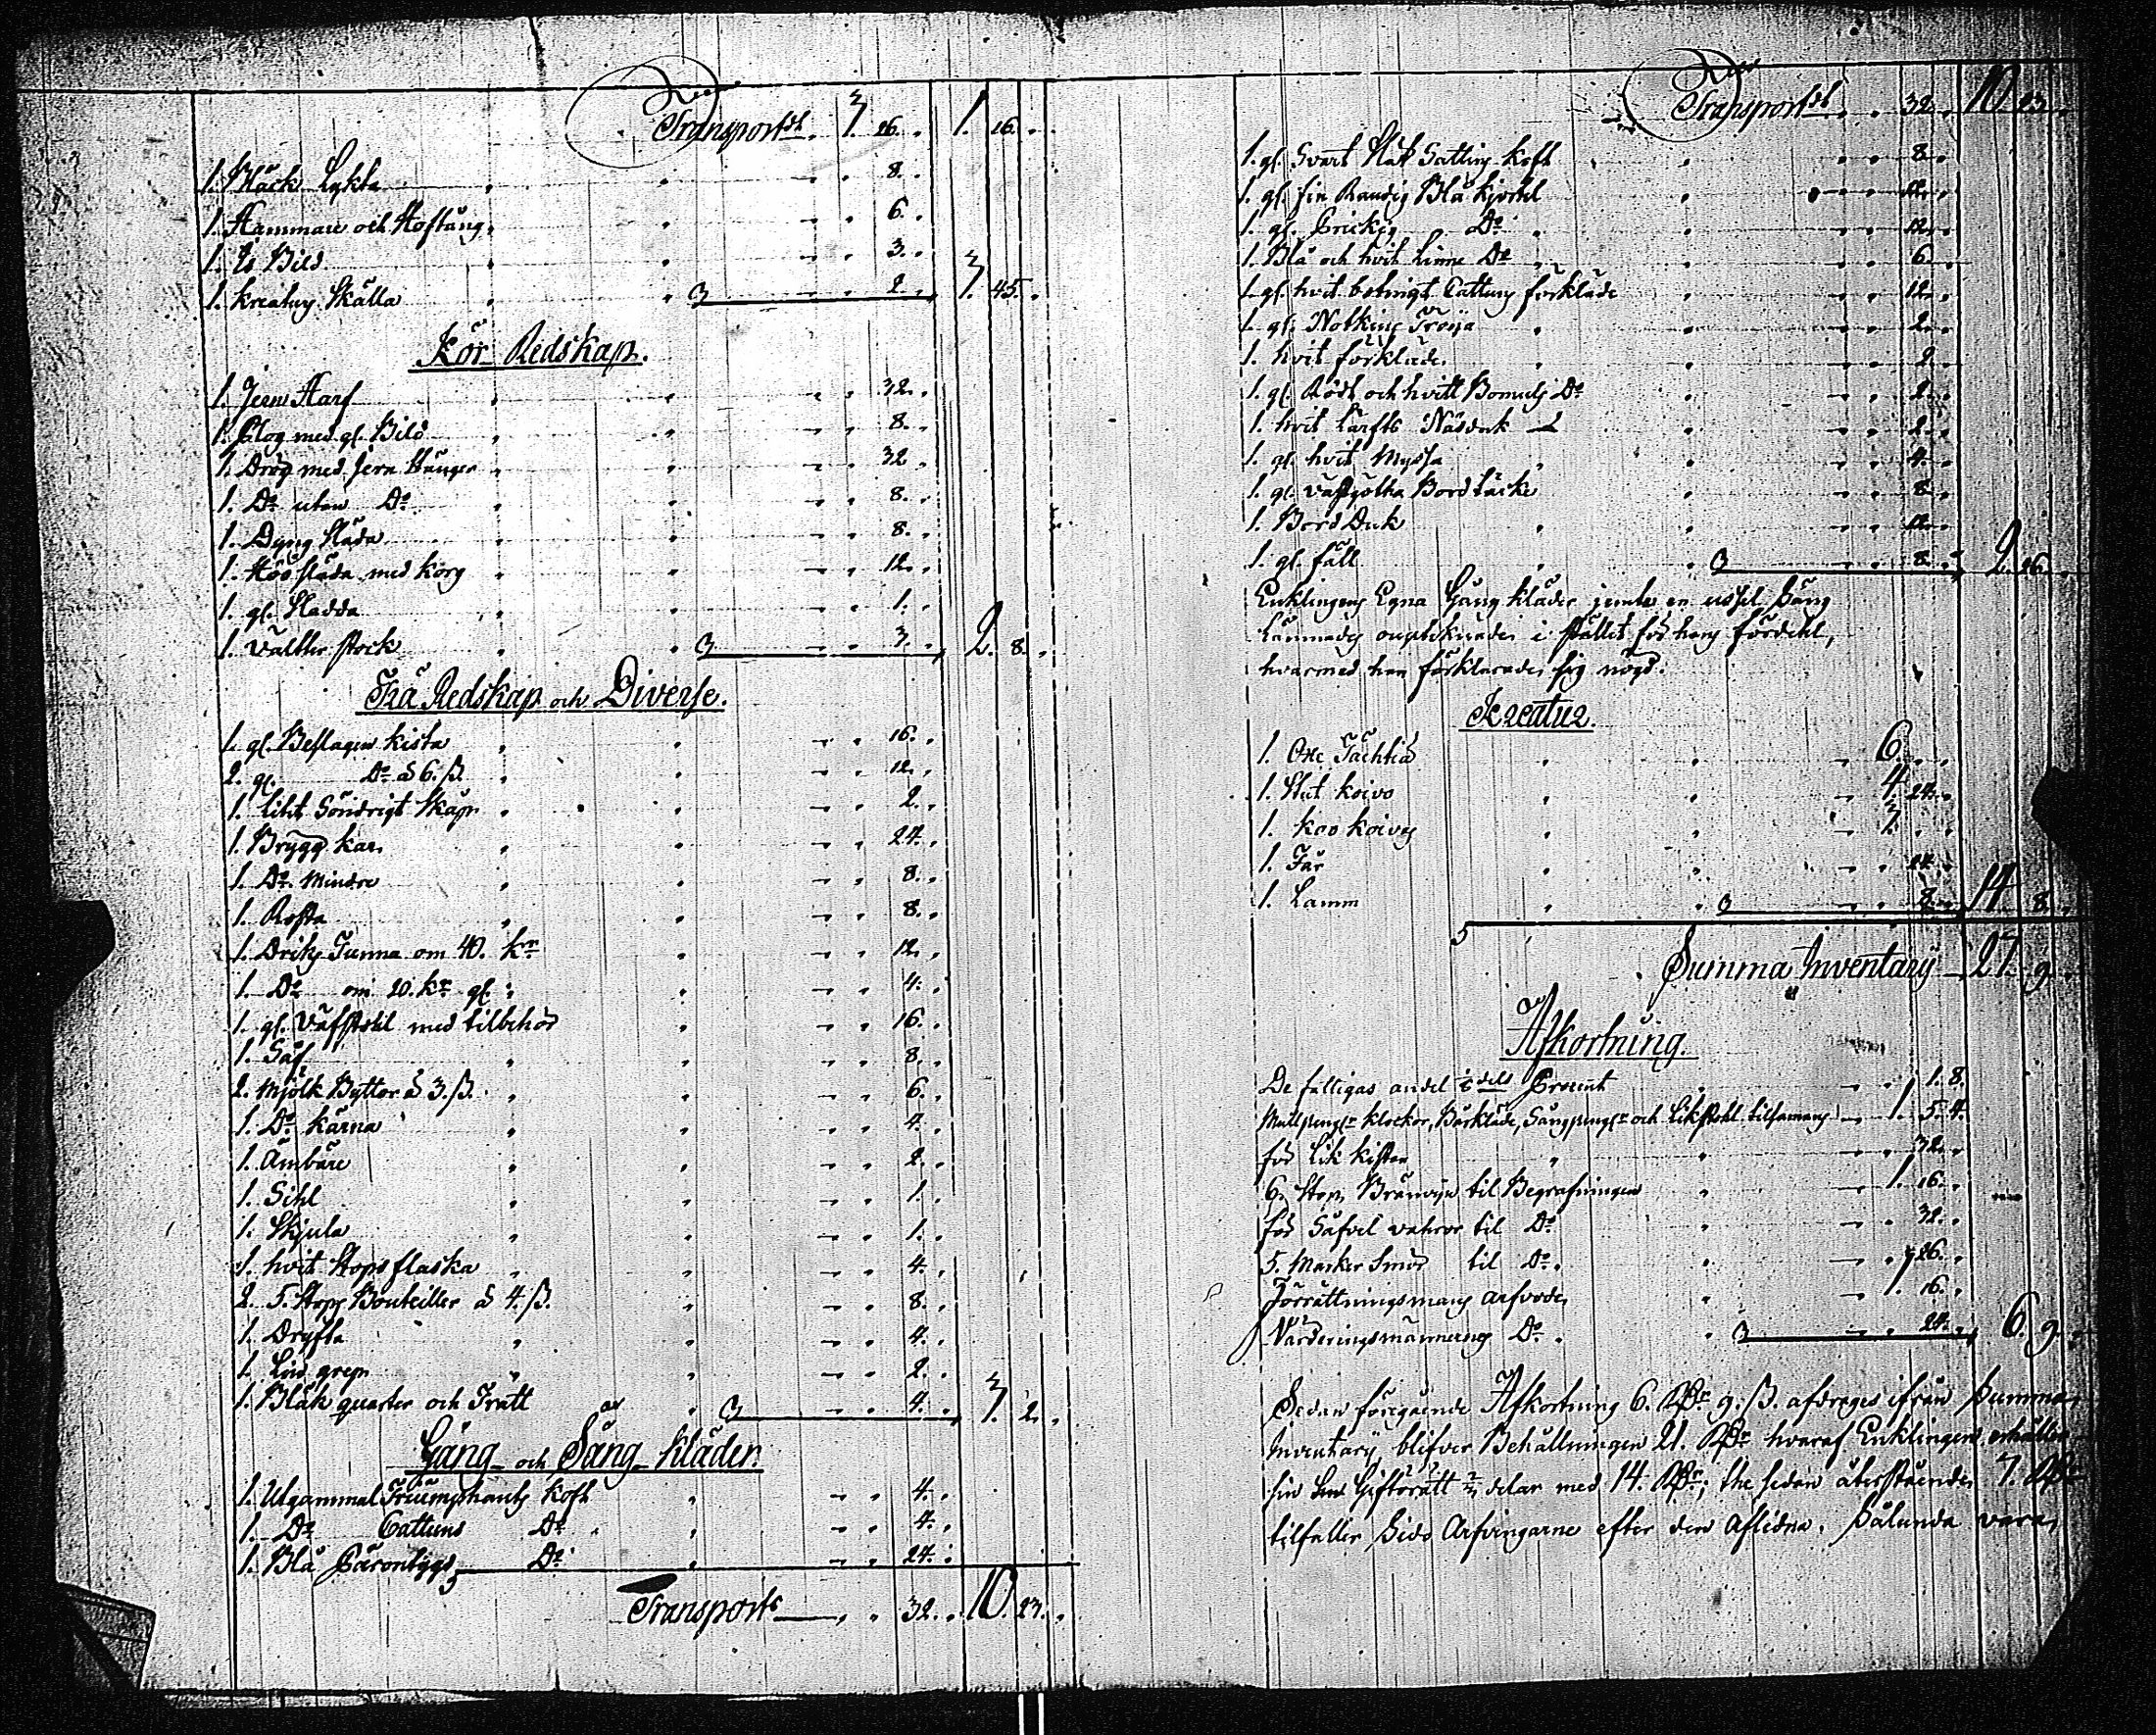 Transport dt 3. 26. 1. 16.
1. Bläck Lykta 8.
1. Hammare och Hoftång 6.
1. Is Bild 3.
1. kreaturs Skälla 2. 3. 45.
Kör Redskap.
1. Jern Harf 32.
1. Plog med gl. Bild 8.
1. Drög med Jern Stänger 32.
1. Do utan Do 8.
1. Dyng Släda 8.
1. Hösläda med korg 12.
1. gl. Sladda 1.
1. Vältter stock 3. 2. 8.
Trä Redskap och Diverse.
1. gl. Beslagen kista 16.
2. gl. Do à 6. ß. 12.
1. litet Söndrigt Skåp 2.
1. Brygg kar 24.
1. Do Mindre 8.
1. Rosta 8.
1. Driks Tunna om 40. knr 12.
1. Do om 20. knr gl. 4.
1. gl. Väfstohl med tilbehör 16.
1. Såf 8.
2. Mjölk Byttor à 3. ß. 6.
1. Do kärna 4.
1. Ämbare 2.
1. Sihl 1.
1. Skjula 1.
1. hvit Stops flaska 4.
2. 5. Stops Bouteiller à 4. ß. 8.
1. Dryfta 4.
1. Lind grep 2.
1. Bläk quarter och Tratt 4. 3. 2.
Gång- och Säng kläder.
1. Utgammal Triumphants koft 4.
1. Do Cattuns Do 4.
1. Blå Do 24.
Transport 32. 10. 23.
Transport dt 32. 10. 23.
1. gl. Svart Slät Satting koft 8.
1. gl. fin Randig Blå kjortel 12.
1. gl. Prickig Do 12.
1. Blå och hvit Linne Do 6.
1. gl. hvit botnigt Cattuns förkläde 12.
1. gl. Notkins Tröija 2.
1. hvit förkläde 2.
1. gl. Rödt och hvitt Bomuls Do 2.
1. hvit Lärfts Näsduk 2.
1. gl. hvit Myssa 4.
1. gl. Västgötha Bord täcke 8.
1. Bord Duk 12.
1. gl. fäll 8. 2. 26.
Enklingens Egna Gång kläder jemte en ussel Säng
Lämnades oupteknade i stället för hans fördehl,
hvarmed han förklarade sig nögd.
Kreatur.
1. Oxe Tächtiä 6.
1. Stut koivo 4. 24.
1. koo koivos 3.
1. Får 24.
1. Lamm 8. 14. 8.
Summa Inventarij 27. 9.
Afkortning.
De fattigas andel 1/8 dels Procent 1. 8.
Mullpengr klockor, Bårkläde, Sångpengr och Likstohl tilsamans 1. 5. 4.
för Lik kistan 32.
6. Stop Bränvin til Begrafningen 1. 16.
för Säfvel vahror til Do 32.
5. Marker Smör til Do 26.
Förrättningsmans arfvode 1. 16.
Värderingsmännernes Do 24. 6. 9.
Sedan föregående Afkortning 6. RDr 9. ß. afdrages ifrån Summa
Inventarij blifver Behållningen 21. RDr hvaraf Enklingen erhåller
sin Giftorätt 2/3 delar med 14. RDr; the sedan återstående 7. RDr
tilfaller Sido Arfvingarne efter den Aflidna. Sålunda vara